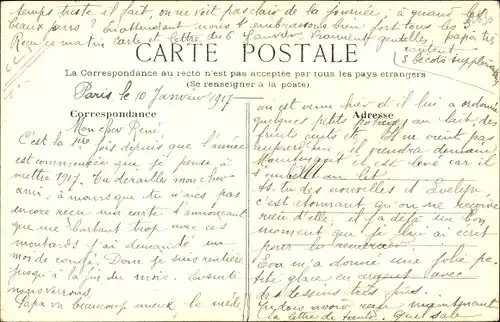 temps triste il fait, on ne voit pas clair de la journée, à quand les
beaux jours? En attendant nous t'embrassons bien fort tous les 3
Reçu ce matin carte et lettre du 6 Janvier. Vraiment gentilles, papa t'en
envoient
3 bécots supplém
CARTE POSTALE
La Correspondance au recto n'est pas acceptée par tous les pays étrangers
(Se renseigner à la poste)
Paris le 10 Janvier 1917
Correspondance
Mon cher René,
C'est la 1ère fois depuis que l'année
est commencée que je pense à
mettre 1917. Tu dérailles mon cher
ami, à moins que tu n'aies pas
encore reçu ma carte t'annonçant
que me barbant trop avec ces
moutards j'ai demandé un
mois de congé. Donc je suis rentière
jusqu'à la fin du mois. Ensuite
nous verrons.
Papa va beaucoup mieux le méde
Adresse
en est venu hier et il lui a ordonné
quelques petits potages au lait des
fruits cuits etc. Il ne vient pas
aujourd'hui il viendra demain.
il est levé car il
au lit.
As-tu des nouvelles d'Evelyn,
c'est étonnant qu'on ne reçoive
rien d'elle, il y a déjà un bon
moment que je lui ai écrit
pour la remercier.
Eva m'a donné une jolie pe
tite glace en argent avec
des dessins très fins.
avoir reçu maintenant
la lettre de tante. Quel sale